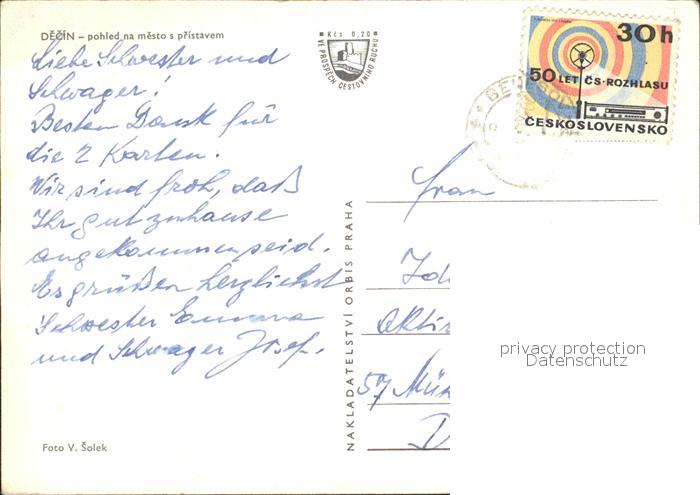 DĚČÍN – pohled na město s přístavem
Kčs 0,20
VE PROSPĚCH CESTOVNÍHO RUCHU
30h
50 LET ČS. ROZHLASU
ČESKOSLOVENSKO
Liebe Schwester und
Schwager!
Besten Dank für
die 2 Karten.
Wir sind froh, daß
Ihr gut zuhause
angekommen seid.
Es grüßen herzlichst
Schwester Emma
und Schwager Josef.
Foto V. Šolek
NAKLADATELSTVÍ ORBIS PRAHA
Frau
57 Mün
D
privacy protection
Datenschutz